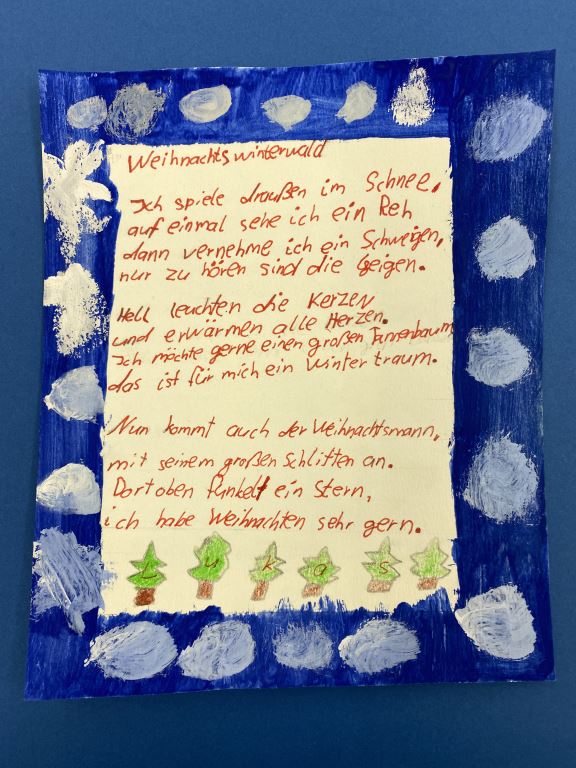 Weihnachtswinterwald
Ich spiele draußen im Schnee,
auf einmal sehe ich ein Reh
dann vernehme ich ein Schweigen,
nur zu hören sind die Geigen.
Hell leuchten die Kerzen
und erwärmen alle Herzen.
Ich möchte gerne einen großen Tannenbaum,
das ist für mich ein Wintertraum.
Nun kommt auch der Weihnachtsmann,
mit seinem großen Schlitten an.
Dort oben funkelt ein Stern,
ich habe Weihnachten sehr gern.
Lukas